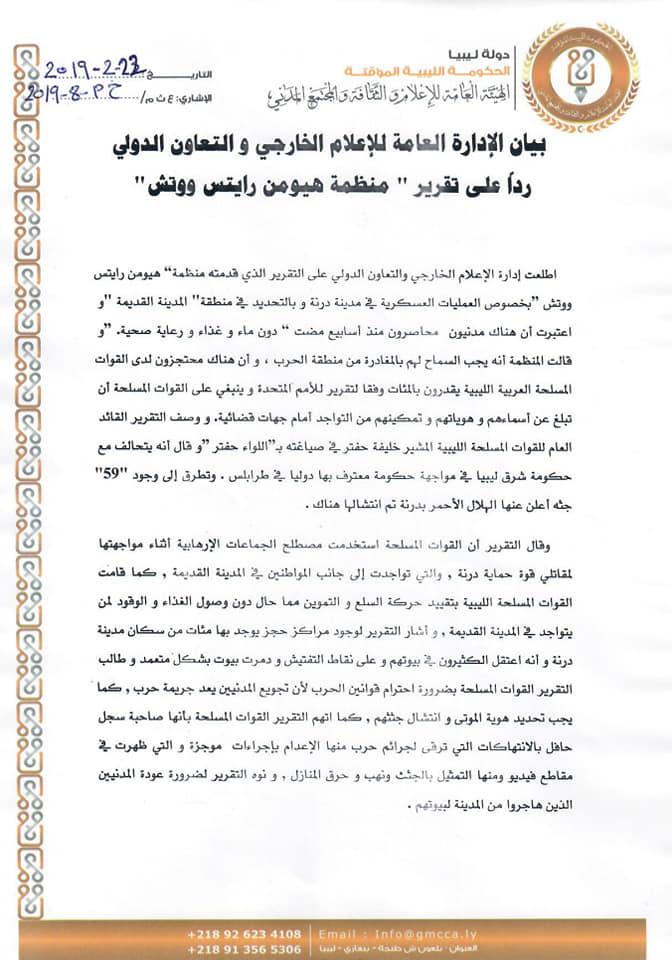 دولة ليبيا
الحكومة الليبية المؤقتة
الهيئة العامة للإعلام و الثقافة و المجتمع المدني
التاريخ 2019-2-23
الإشاري: ع ث م / خ م-8-2019
بيان الإدارة العامة للإعلام الخارجي و التعاون الدولي
رداً على تقرير " منظمة هيومن رايتس ووتش"
اطلعت إدارة الإعلام الخارجي والتعاون الدولي على التقرير الذي قدمته منظمة" هيومن رايتس
ووتش "بخصوص العمليات العسكرية في مدينة درنة و بالتحديد في منطقة" المدينة القديمة "و
اعتبرت أن هناك مدنيون محاصرون منذ أسابيع مضت " دون ماء و غذاء و رعاية صحية. "و
قالت المنظمة أنه يجب السماح لهم بالمغادرة من منطقة الحرب ، و أن هناك محتجزون لدى القوات
المسلحة العربية الليبية يقدرون بالمئات وفقا لتقرير للأمم المتحدة و ينبغي على القوات المسلحة أن
تبلغ عن أسماءهم و هوياتهم و تمكينهم من التواجد أمام جهات قضائية. و وصف التقرير القائد
العام للقوات المسلحة الليبية المشير خليفة حفتر في صياغته بـ"اللواء حفتر "و قال أنه يتحالف مع
حكومة شرق ليبيا في مواجهة حكومة معترف بها دوليا في طرابلس . وتطرق إلى وجود "59"
جثه أعلن عنها الهلال الأحمر بدرنة تم انتشالها هناك .
وقال التقرير أن القوات المسلحة استخدمت مصطلح الجماعات الإرهابية أثناء مواجهتها
لمقاتلي قوة حماية درنة , والتي تواجدت إلى جانب المواطنين في المدينة القديمة , كما قامت
القوات المسلحة الليبية بتقييد حركة السلع و التموين مما حال دون وصول الغذاء و الوقود لمن
يتواجد في المدينة القديمة , و أشار التقرير لوجود مراكز حجز يوجد بها مئات من سكان مدينة
درنة و أنه اعتقل الكثيرون في بيوتهم و على نقاط التفتيش و دمرت بيوت بشكل متعمد و طالب
التقرير القوات المسلحة بضرورة احترام قوانين الحرب لأن تجويع المدنيين يعد جريمة حرب , كما
يجب تحديد هوية الموتى و انتشال جثثهم , كما اتهم التقرير القوات المسلحة بأنها صاحبة سجل
حافل بالانتهاكات التي ترقى لجرائم حرب منها الإعدام بإجراءات موجزة و التي ظهرت في
مقاطع فيديو ومنها التمثيل بالجثث ونهب و حرق المنازل , و نوه التقرير لضرورة عودة المدنيين
الذين هاجروا من المدينة لبيوتهم .
+218 92 623 4108 | Email : Info@gmcca.ly
+218 91 356 5306 | العنوان - بلعون ش طنجة - بنغازي - ليبيا